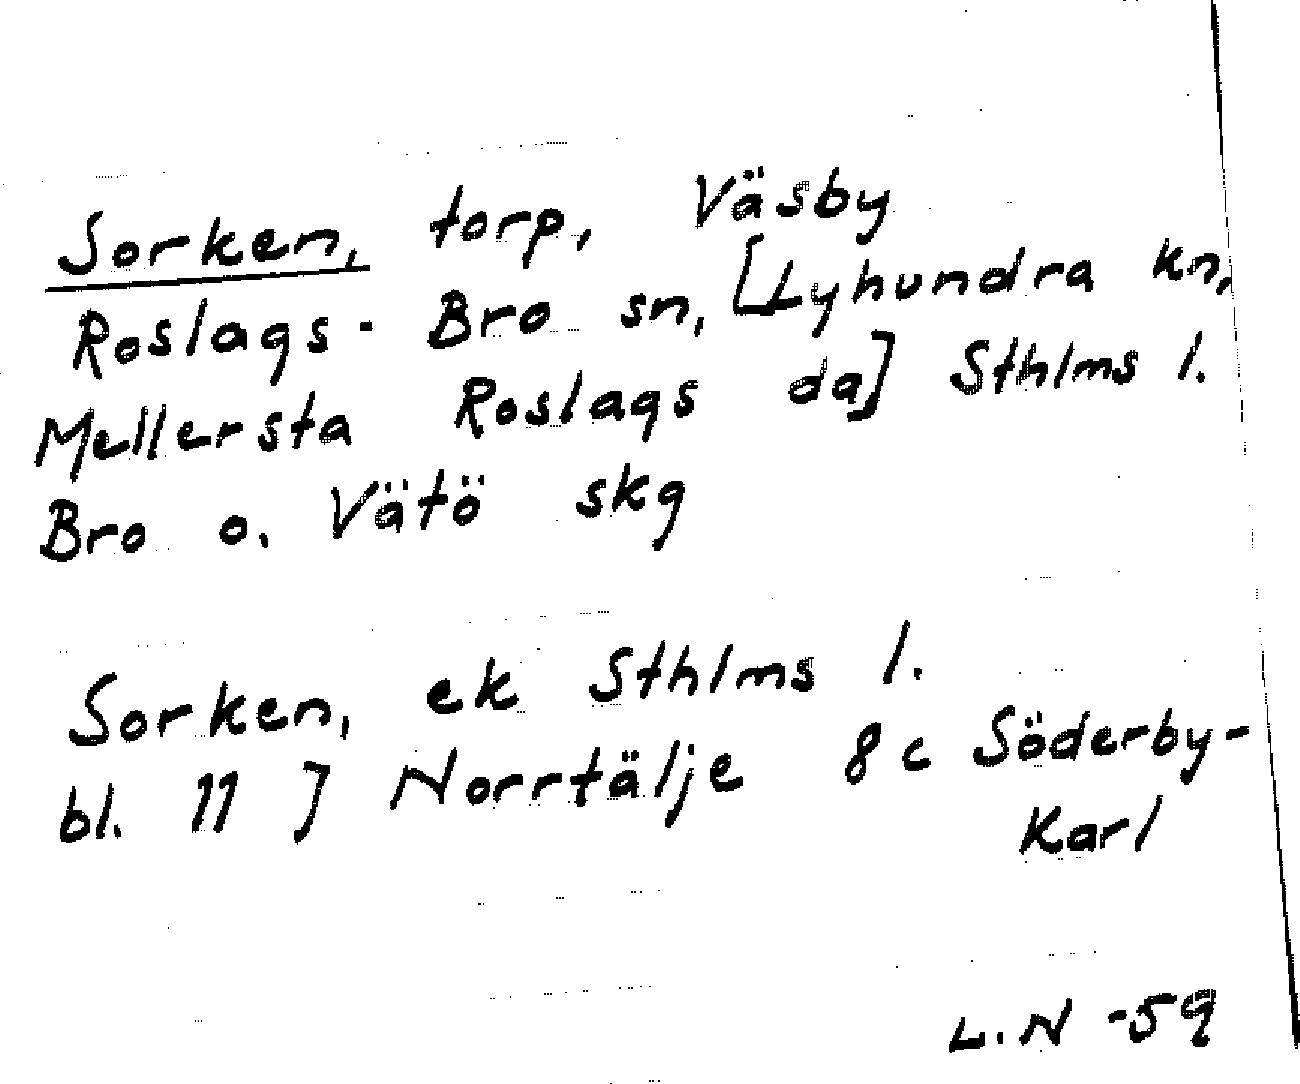 Sorken, torp, Väsby
Roslags-Bro sn, [Lyhundra kn,
Mellersta Roslags da] Sthlms l.
Bro o. Vätö skg
Sorken, ek Sthlms l.
bl. 11 J Norrtälje 8c Söderby-
Karl
L.N -59